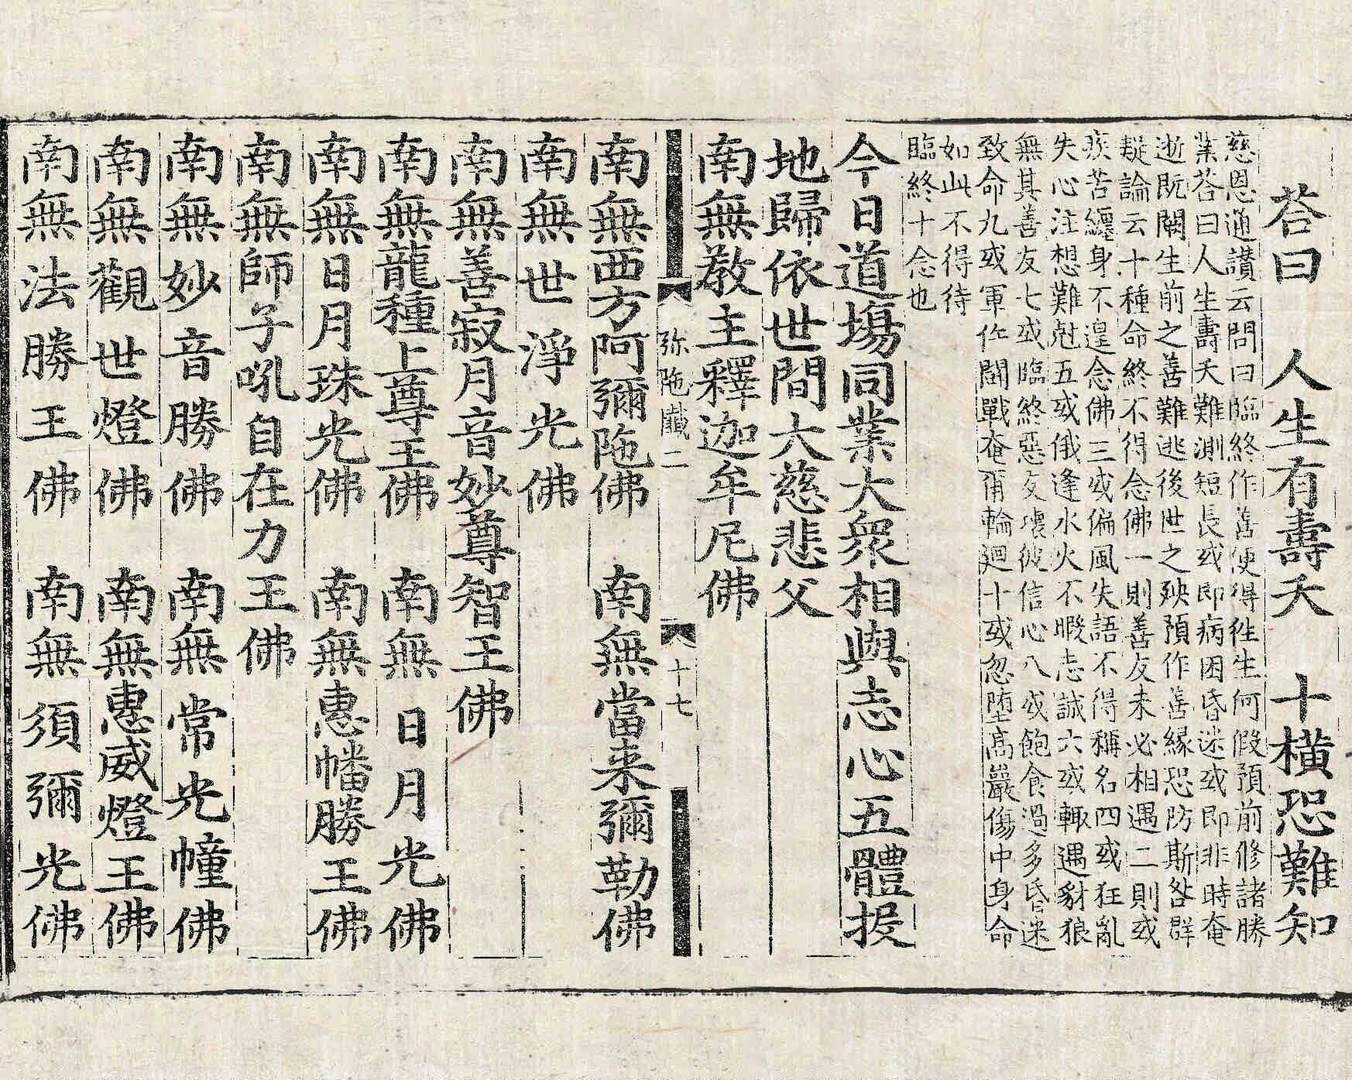 荅曰　人生有壽夭　十橫恐難知
慈恩通讃云問曰臨終作善便得徃生何假預前修諸勝
業荅曰人生壽夭難測短長或即病困昏迷或即非時奄
逝既闕生前之善難逃後世之殃預作善緣恐防斯咎群
疑論云十種命終不得念佛一則善友未必相遇二則或
疾苦纏身不遑念佛三或偏風失語不得稱名四或狂亂
失心注想難尅五或俄逢水火不暇志誠六或輙遇豺狼
無其善友七或臨終惡友壞彼信心八或飽食過多昏迷
致命九或軍作鬪戰奄爾輪廻十或忽墮高巖傷中身命
如此不得待
臨終十念也
今日道場同業大衆相與志心五體投
地歸依世間大慈悲父
南無教主釋迦牟尼佛
弥陁懺二　十七
南無西方阿彌陁佛　南無當来彌勒佛
南無世淨光佛
南無善寂月音妙尊智王佛
南無龍種上尊王佛　南無日月光佛
南無日月珠光佛　南無惠幡勝王佛
南無師子吼自在力王佛
南無妙音勝佛　南無常光幢佛
南無觀世燈佛　南無惠威燈王佛
南無法勝王佛　南無須彌光佛